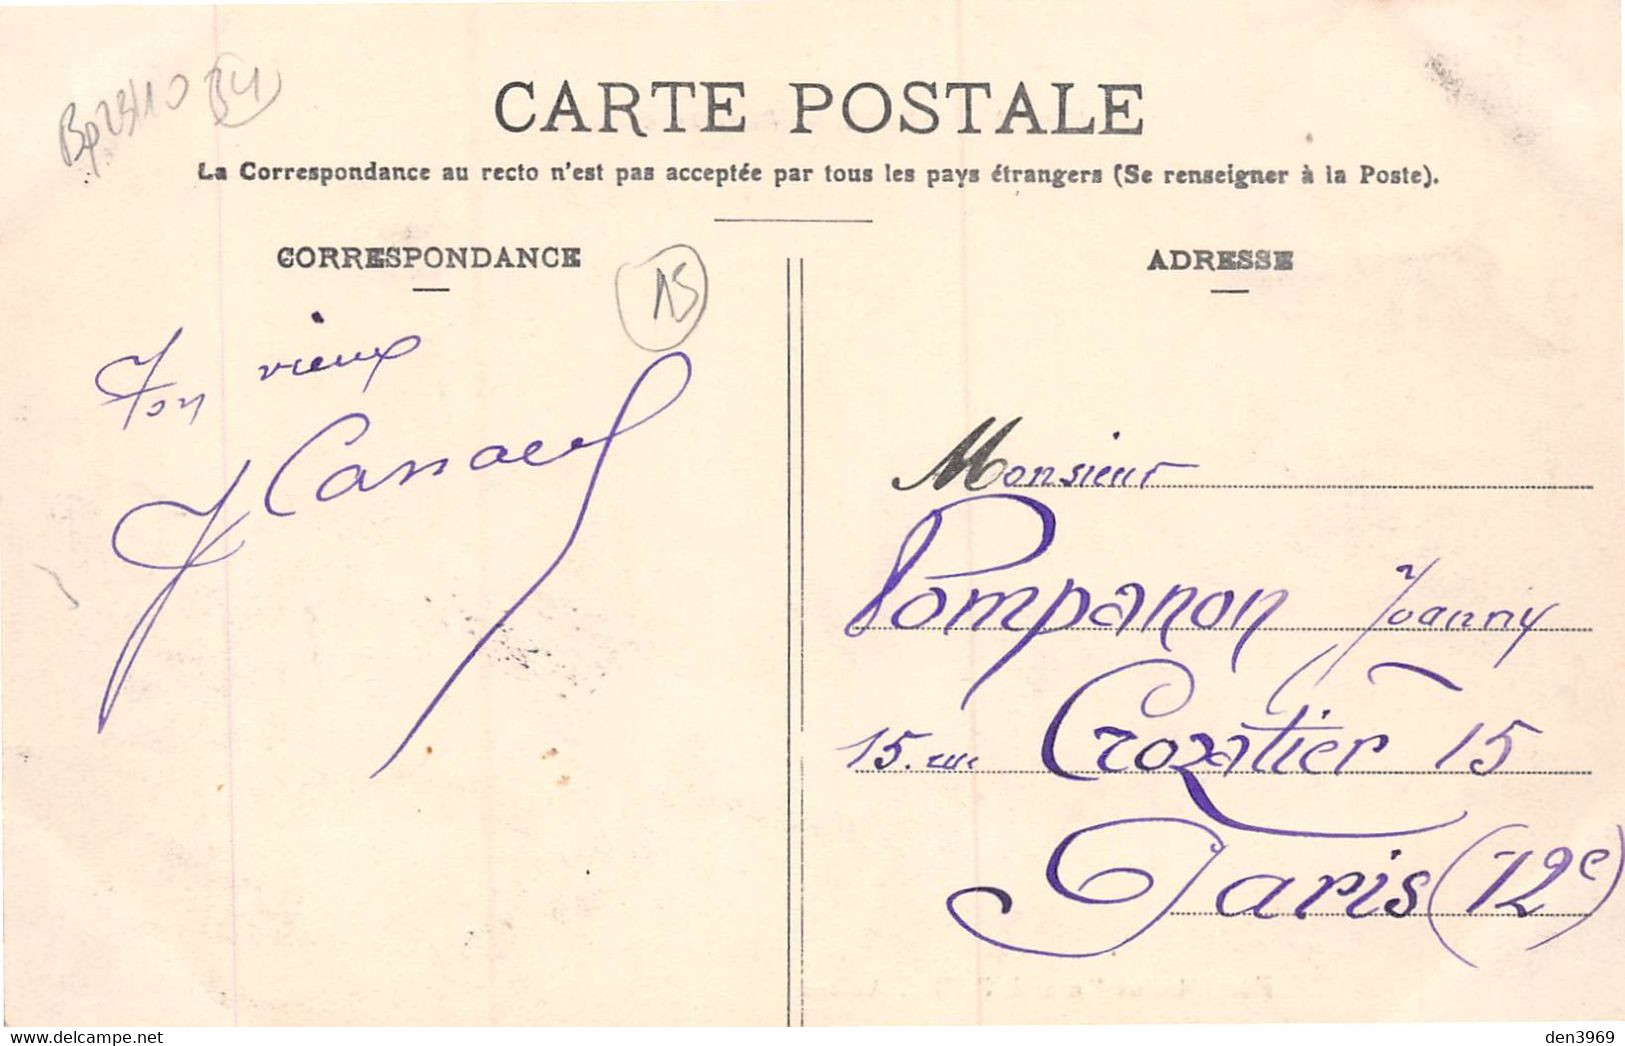 Bp 23/10 34
CARTE POSTALE
La Correspondance au recto n'est pas acceptée par tous les pays étrangers (Se renseigner à la Poste).
CORRESPONDANCE
15
Ton vieux
J
ADRESSE
Monsieur
Pompanon Joanny
15. rue Crozatier 15
Paris (12e)
www.delcampe.net
den3969